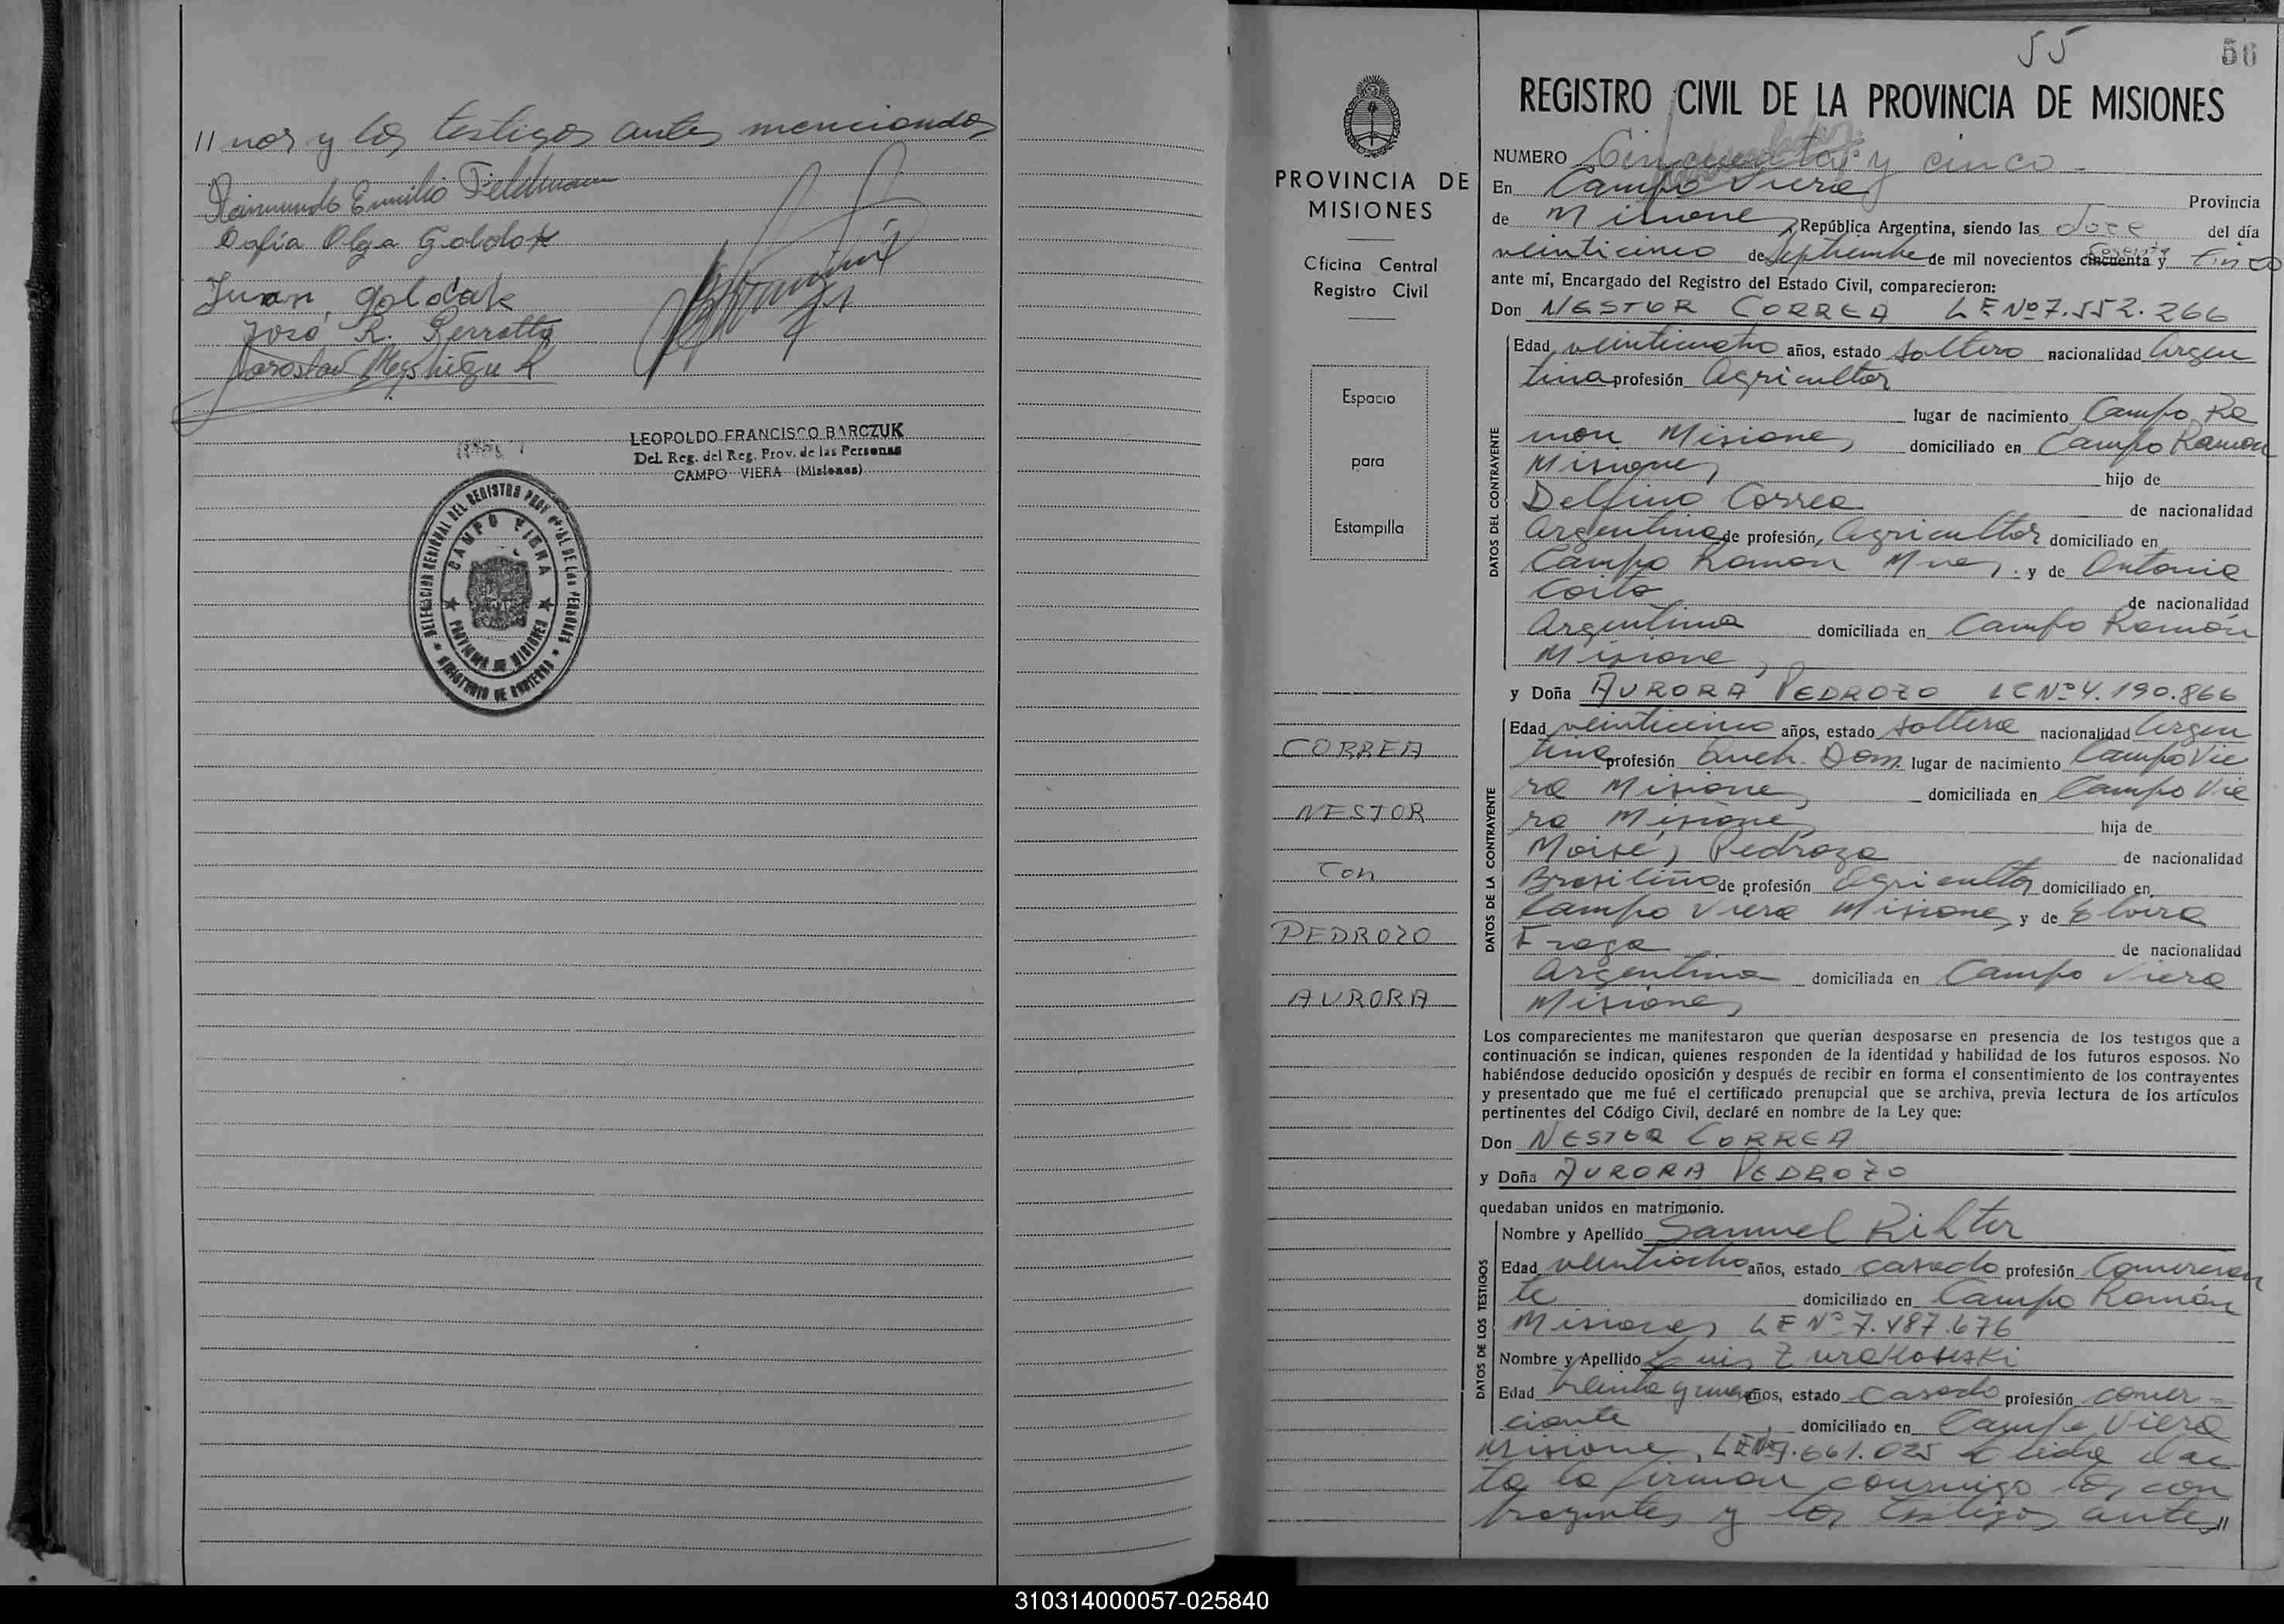 // nos y los testigos antes mencionados
Raimundo Emilio Feldmann
Sofía Olga Goldak
Juan Goldak
José R. Perrotta
Jaroslav
LEOPOLDO FRANCISCO BARCZUK
Del. Reg. del Reg. Prov. de las Personas
CAMPO VIERA (Misiones)
DELEGACION REGIONAL DEL REGISTRO PROVINCIAL DE LAS PERSONAS
CAMPO VIERA
PROVINCIA DE MISIONES
MINISTERIO DE GOBIERNO
PROVINCIA DE
MISIONES
Oficina Central
Registro Civil
Espacio
para
Estampilla
CORREA
NESTOR
Con
PEDROZO
AURORA
55
56
REGISTRO CIVIL DE LA PROVINCIA DE MISIONES
NUMERO Cincuenta y cinco
En Campo Viera Provincia
de Misiones República Argentina, siendo las doce del día
veinticinco de Septiembre de mil novecientos cincuenta y sesenta cinco
ante mí, Encargado del Registro del Estado Civil, comparecieron:
Don NESTOR CORREA LE Nº 7.552.266
Edad veinticuatro años, estado soltero nacionalidad Argen
tina profesión Agricultor
lugar de nacimiento Campo Ra
mon Misiones domiciliado en Campo Ramon
Misiones hijo de
Delfino Correa de nacionalidad
Argentina de profesión, Agricultor domiciliado en
Campo Ramon Mnes. y de Antonia
Coito de nacionalidad
Argentina domiciliada en Campo Ramón
Misiones
DATOS DEL CONTRAYENTE
y Doña AURORA PEDROZO LC Nº 4.190.866
Edad veinticinco años, estado soltera nacionalidad Argen
tina profesión Queh. Dom. lugar de nacimiento Campo Vie
ra Misiones domiciliada en Campo Vie
ra Misiones hija de
Moisés Pedrozo de nacionalidad
Brasileña de profesión Agricultor domiciliado en
Campo Viera Misiones y de Elvira
Fraga de nacionalidad
Argentina domiciliada en Campo Viera
Misiones
DATOS DE LA CONTRAYENTE
Los comparecientes me manifestaron que querían desposarse en presencia de los testigos que a
continuación se indican, quienes responden de la identidad y habilidad de los futuros esposos. No
habiéndose deducido oposición y después de recibir en forma el consentimiento de los contrayentes
y presentado que me fué el certificado prenupcial que se archiva, previa lectura de los artículos
pertinentes del Código Civil, declaré en nombre de la Ley que:
Don NESTOR CORREA
y Doña AURORA PEDROZO
quedaban unidos en matrimonio.
Nombre y Apellido Samuel Rihter
Edad veintiocho años, estado casado profesión Comercian
te domiciliado en Campo Ramón
Misiones LE Nº 7.487.676
Nombre y Apellido Luis Zurakouski
Edad treinta y un años, estado casado profesión comer-
ciante domiciliado en Campo Viera
DATOS DE LOS TESTIGOS
Misiones, LE Nº .661.025 leida el ac
ta la firman conmigo los con
trayentes y los testigos antes //
310314000057-025840